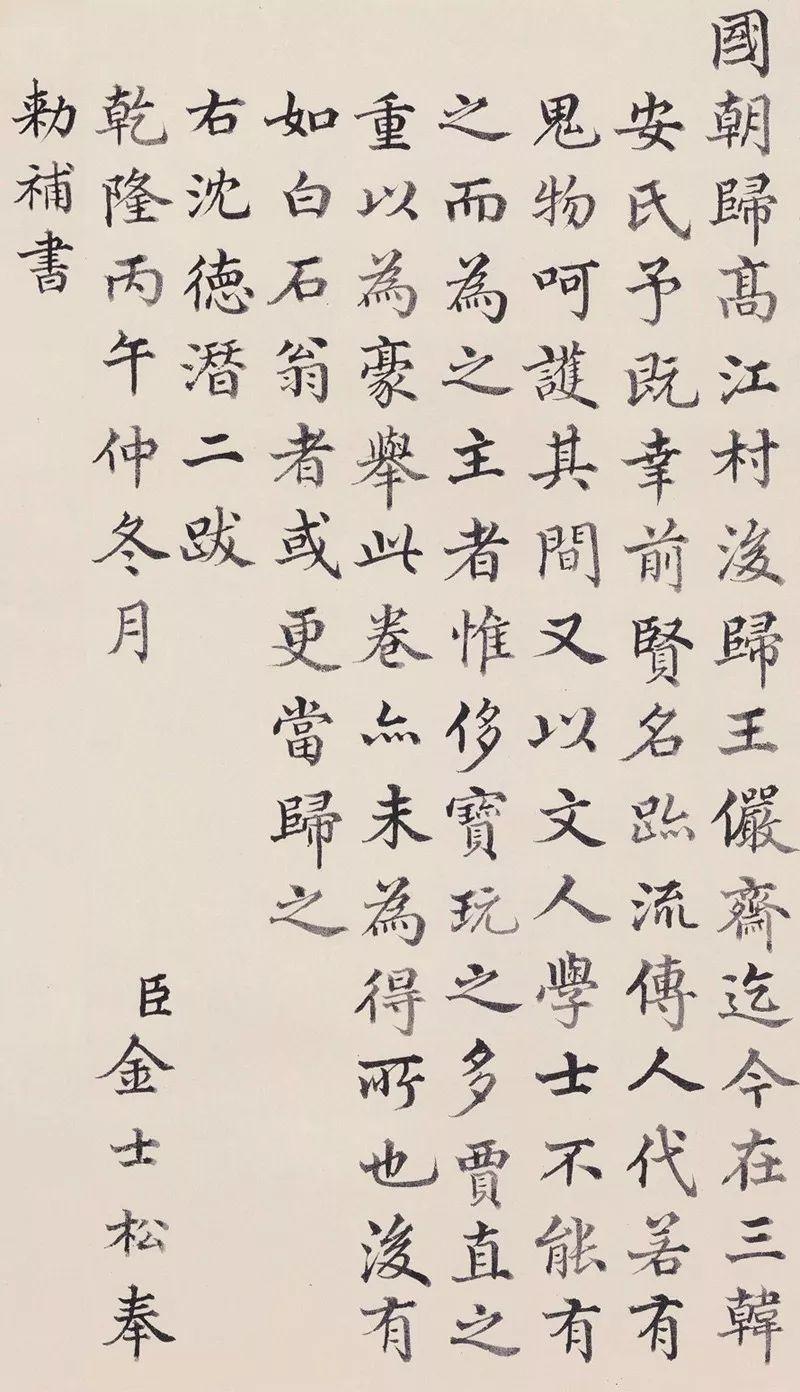 國朝歸髙江村後歸王儼齋迄今在三韓
安氏予既幸前賢名跡流傳人代若有
鬼物呵護其間又以文人學士不能有
之而為之主者惟侈寶玩之多賈直之
重以為豪舉此卷亦未為得所也後有
如白石翁者或更當歸之
右沈德潛二跋
乾隆丙午仲冬月 臣金士松奉
勅補書